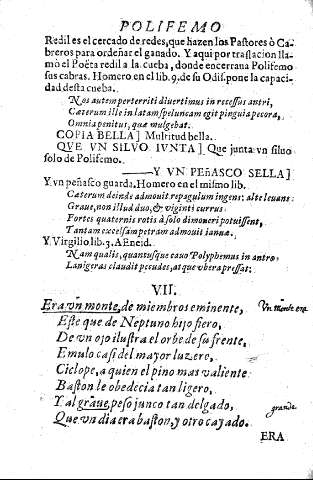 POLIFEMO
Redil es el cercado de redes, que hazen los Pastores ò Ca-
breros para ordeñar el ganado. Y aqui por traslacion lla-
mò el Poëta redil a la cueba, donde encerrana Polifemo
sus cabras. Homero en el lib. 9. de su Odis. pone la capaci-
dad desta cueba.
Nos autem perterriti diuertimus in recessus antri,
Cæterum ille in latam speluncam egit pinguia pecora,
Omnia penitus, quæ mulgebat.
COPIA BELLA] Multitud bella.
QUE UN SILVO IUNTA] Que junta vn siluo
solo de Polifemo.
Y VN PEñASCO SELLA]
Y vn peñasco guarda. Homero en el mismo lib.
Cæterum deinde admouit repagulum ingens; alte leuans:
Graue, non illud duo, & viginti currus
Fortes quaternis rotis à solo dimoueri potuissent,
Tantam excelsam petram admouit ianuæ.
Y Virgilio lib. 3. AEneid.
Nam qualis, quantusque cauo Polyphemus in antro,
Lanigeras claudit pecudes, atque vbera pressat;
VII.
Era vn monte, de miembros eminente,
Vn monte era
Este que de Neptuno hijo fiero,
De vn ojo ilustra el orbe de su frente,
Emulo casi del mayor luzero,
Ciclope, a quien el pino mas valiente
Baston le obedecia tan ligero,
Y al graue, peso junco tan delgado,
grande
Que vn dia era baston, y otro cayado.
ERA